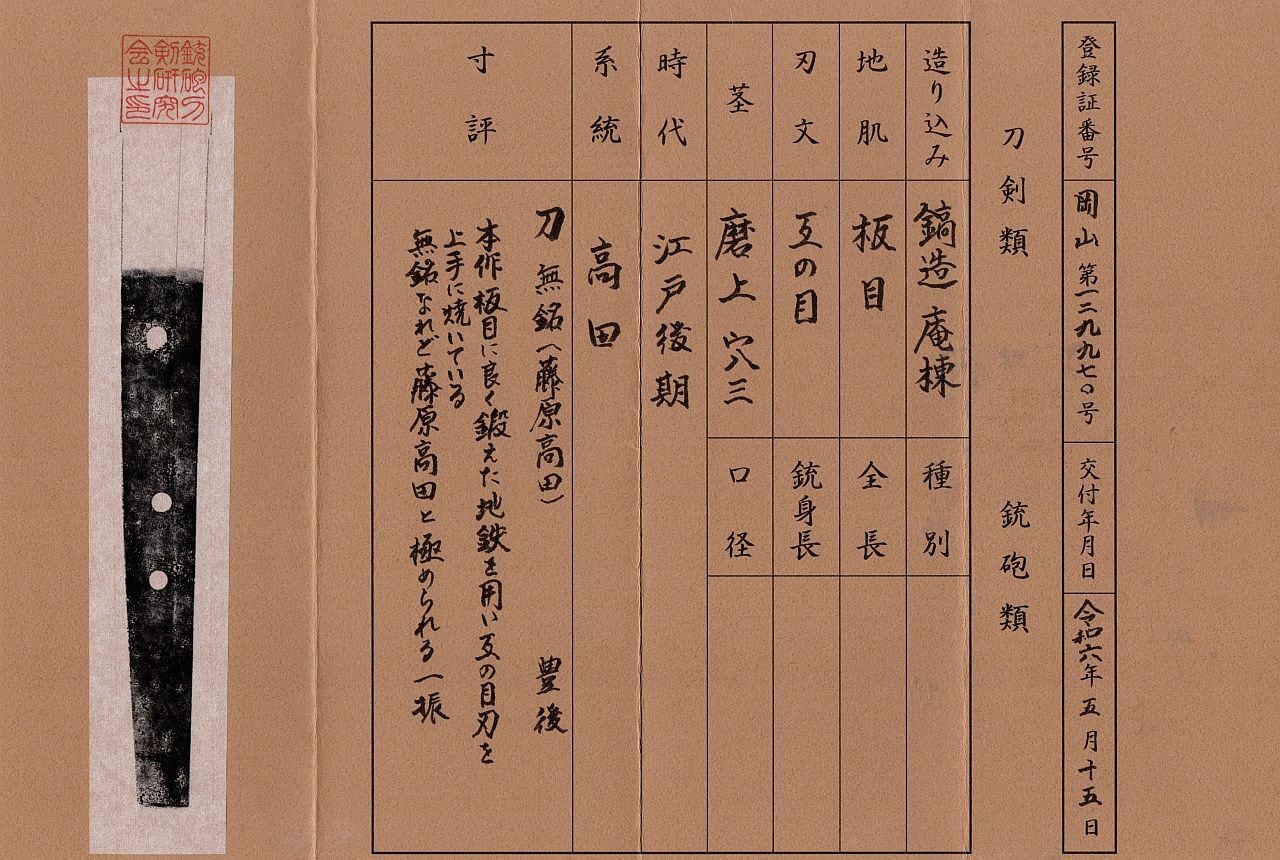 登録証番号 岡山 第一二九九七〇号 交付年月日 令和六年五月十五日
刀剣類 銃砲類
造り込み 鎬造 庵棟 種別
地肌 板目 全長
刃文 互の目 銃身長
茎 磨上 穴三 口径
時代 江戸後期
系統 高田
寸評 刀 無銘(藤原高田) 豊後
本作板目に良く鍛えた地鉄を用い互の目刃を
上手に焼いている
無銘なれど藤原高田と極められる一振
銃砲刀
剣研究
会之印